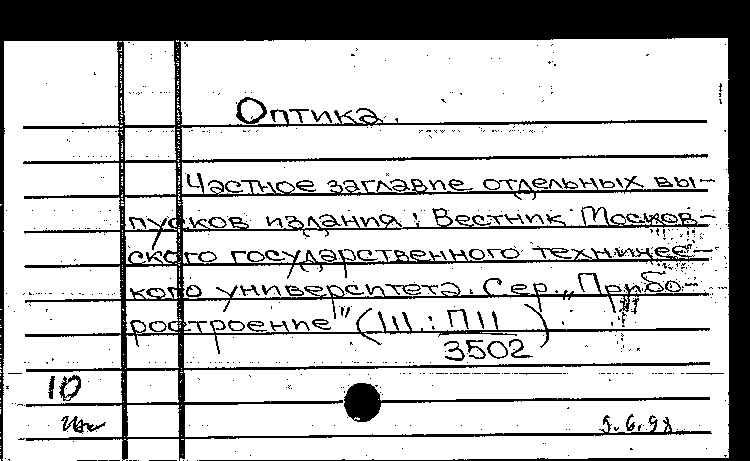 Оптика.
Частное заглавие отдельных вы-
пусков издания: Вестник Москов-
ского государственного техничес-
кого университета. Сер. „Прибо-
ростроение" (Ш: П11
3502)
10
9.6.98